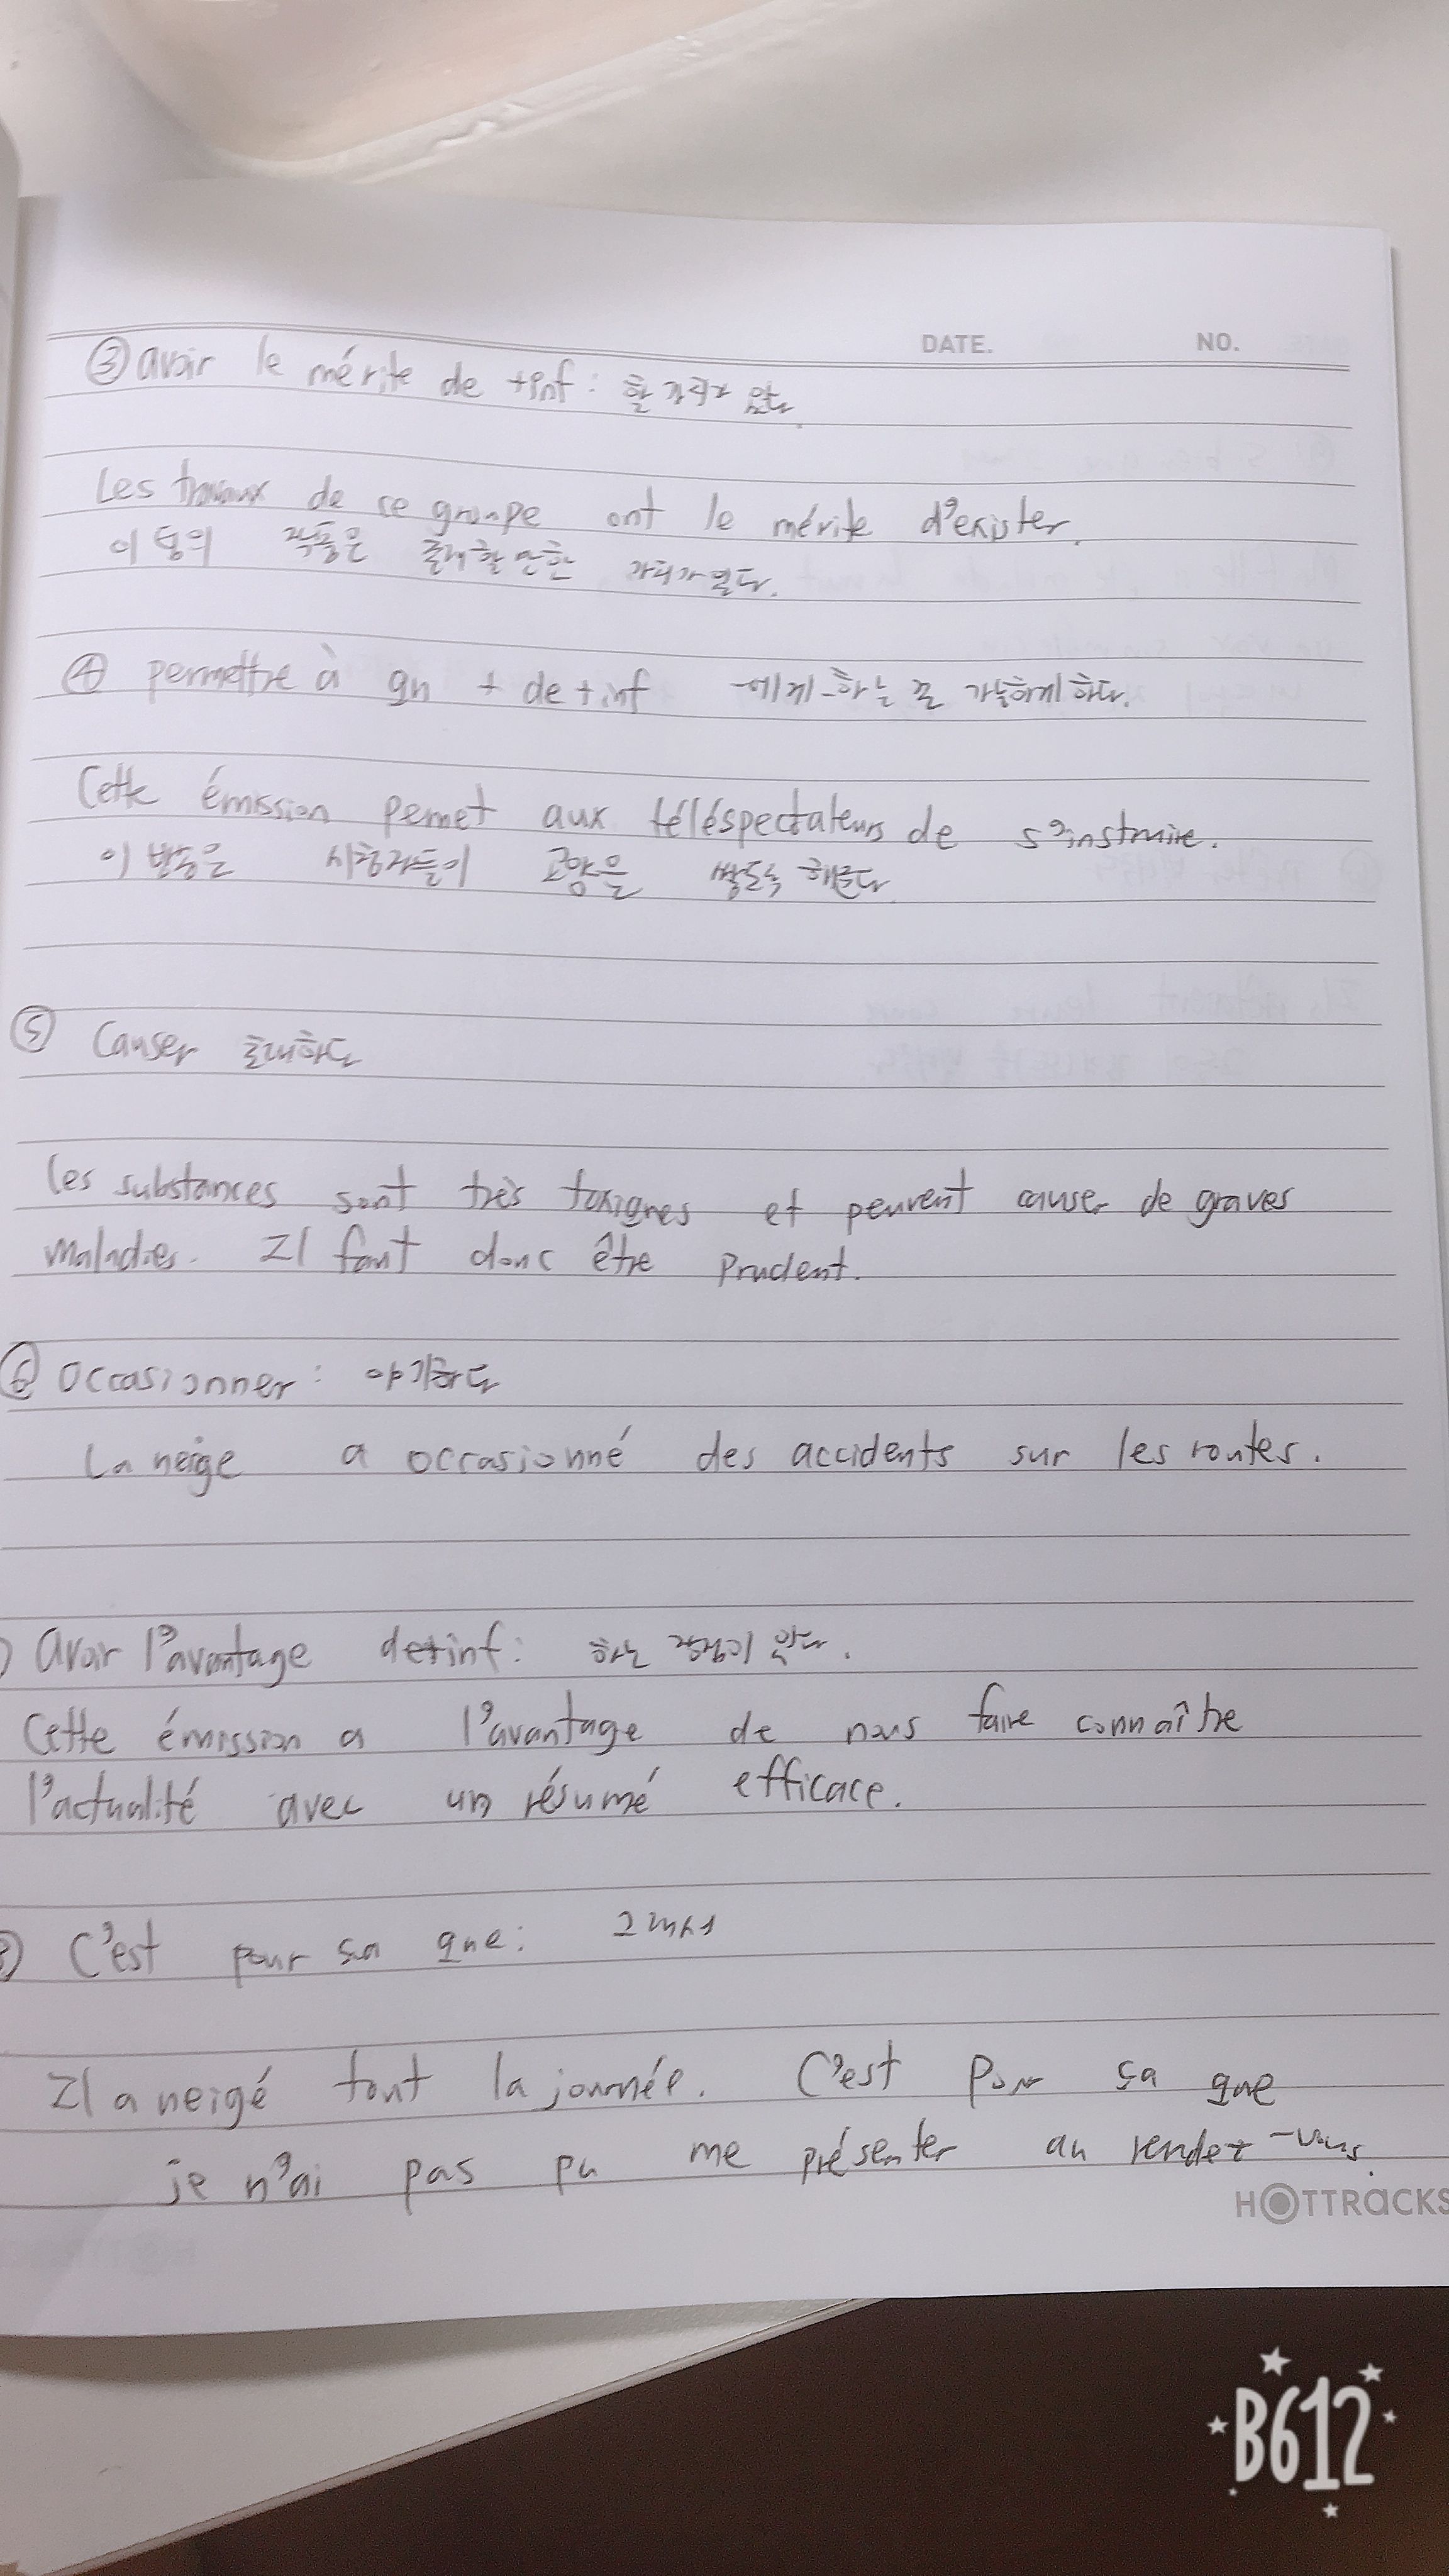 DATE. NO.
③ avoir le mérite de +inf : 할 가치가 있다.
Les travaux de ce groupe ont le mérite d'exister.
이 팀의 작품은 존재할만한 가치가 있다.
④ permettre à qn + de + inf -에게 -하는 걸 가능하게 하다.
Cette émission permet aux téléspectateurs de s'instruire.
이 방송은 시청자들이 교양을 쌓도록 해준다.
⑤ Causer 초래하다
les substances sont très toxiques et peuvent causer de graves
maladies. Il faut donc être prudent.
⑥ occasionner : 야기하다
La neige a occasionné des accidents sur les routes.
) Avoir l'avantage de+inf : 하는 장점이 있다.
Cette émission a l'avantage de nous faire connaître
l'actualité avec un résumé efficace.
) C'est pour sa que : 그래서
Il a neigé tout la journée. C'est pour ça que
je n'ai pas pu me présenter au rendez-vous.
HOTTRACKS
B612